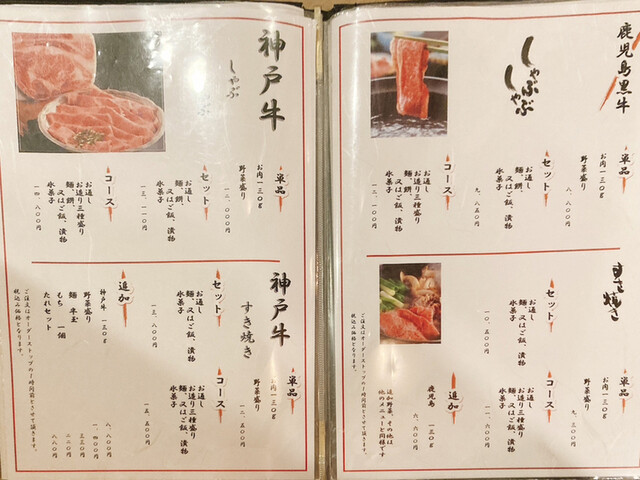 鹿児島黒牛
しゃぶしゃぶ
単品
お肉一三〇g
野菜盛り
八、八〇〇円
セット
お通し
麺、餅、又はご飯、漬物
氷菓子
九、八五〇円
コース
お通し
お造り三種盛り
麺、餅、又はご飯、漬物
氷菓子
すき焼き
単品
お肉一三〇g
野菜盛り
九、三〇〇円
セット
お通し
麺、又はご飯、漬物
氷菓子
一〇、五〇〇円
コース
お通し
お造り三種盛り
麺、又はご飯、漬物
氷菓子
追加
鹿児島 一三〇g
六、六〇〇円
追加野菜、その他は
他のメニューと同様です
ご注文はオーダーストップの1時間前とさせて頂きます。
税込み価格となります。
神戸牛
しゃぶ
単品
お肉一三〇g
野菜盛り
一二、〇〇〇円
セット
お通し
麺、餅、又はご飯、漬物
氷菓子
一三、一一〇円
コース
お通し
お造り三種盛り
麺、餅、又はご飯、漬物
氷菓子
一四、八〇〇円
神戸牛
すき焼き
単品
お肉一三〇g
野菜盛り
一二、五〇〇円
セット
お通し
麺、又はご飯、漬物
氷菓子
一三、八〇〇円
コース
お通し
お造り三種盛り
麺、又はご飯、漬物
氷菓子
一五、五〇〇円
追加
神戸牛 一三〇g
八、八〇〇円
野菜盛り
一、四〇〇円
麺 半玉
三三〇円
もち 一個
二二〇円
たれセット
八八〇円
ご注文はオーダーストップの1時間前とさせて頂きます。
税込み価格となります。